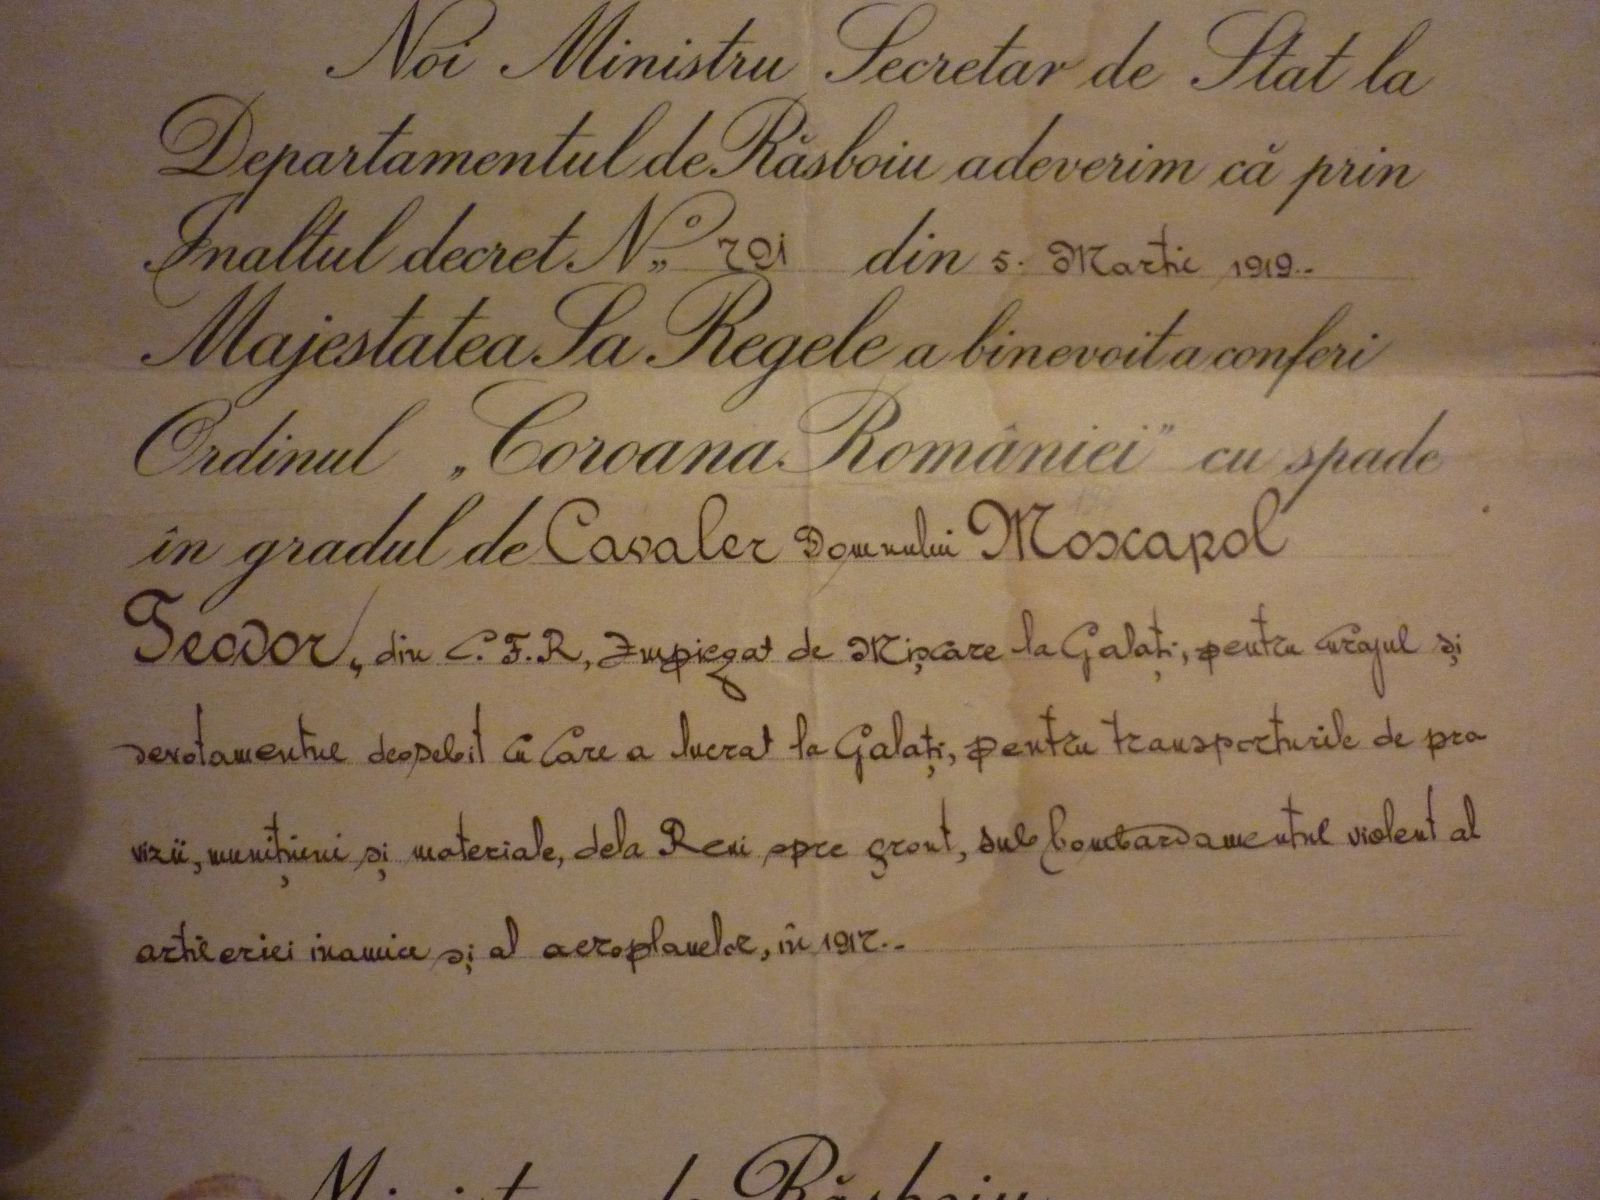 Noi Ministru Secretar de Stat la
Departamentul de Răsboiu adeverim că prin
Inaltul decret No. 701 din 5. Martie 1919..
Majestatea Sa Regele a binevoit a conferi
Ordinul „Coroana României” cu spade
în gradul de Cavaler Domnului Moscapol
Teodor, din C.F.R, Impiegat de Mișcare la Galați, pentru curajul și
devotamentul deosebit cu care a lucrat la Galați, pentru transporturile de pro
vizii, munițiuni și materiale, dela Reni spre front, sub bombardamentul violent al
artileriei inamice și al aeroplanelor, în 1917..
Ministru de Răsboiu